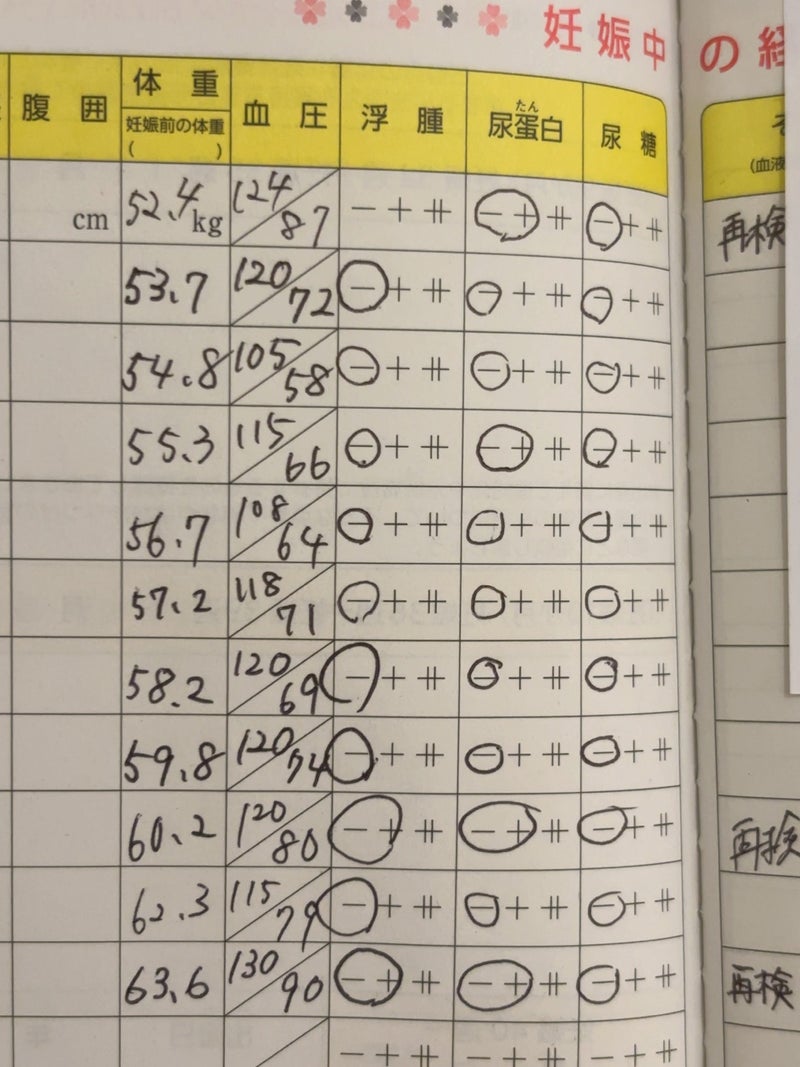 妊娠中の経
腹囲 体重 血圧 浮腫 尿蛋白 尿糖
たん
妊娠前の体重
( )
(血液
cm 52.4kg 124/87 − + ⧺ − + ⧺ − + ⧺ 再検
53.7 120/72 − + ⧺ − + ⧺ − + ⧺
54.8 105/58 − + ⧺ − + ⧺ − + ⧺
55.3 115/66 − + ⧺ − + ⧺ − + ⧺
56.7 108/64 − + ⧺ − + ⧺ − + ⧺
57.2 118/71 − + ⧺ − + ⧺ − + ⧺
58.2 120/69 − + ⧺ − + ⧺ − + ⧺
59.8 120/74 − + ⧺ − + ⧺ − + ⧺
60.2 120/80 − + ⧺ − + ⧺ − + ⧺ 再検
62.3 115/79 − + ⧺ − + ⧺ − + ⧺
63.6 130/90 − + ⧺ − + ⧺ − + ⧺ 再検
− + ⧺ − + ⧺ − + ⧺